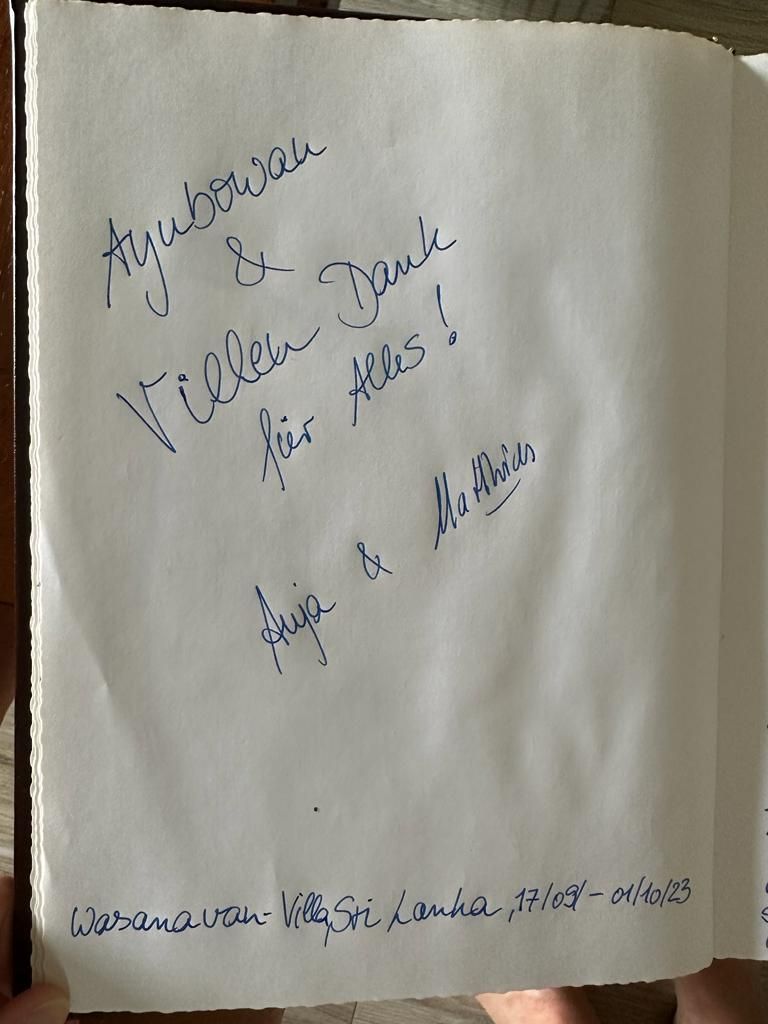 Ayubowan
&
Villen Dank
für Alles!
Anja & Matthias
Wasanavan-Villa, Sri Lanka, 17/09/ - 01/10/23